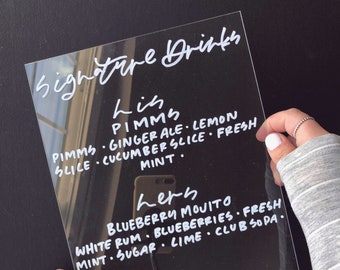 Signature Drinks
his
PIMMS
PIMMS · GINGER ALE · LEMON
SLICE · CUCUMBER SLICE · FRESH
MINT ·
hers
BLUEBERRY MOJITO
WHITE RUM · BLUEBERRIES · FRESH
MINT · SUGAR · LIME · CLUB SODA ·